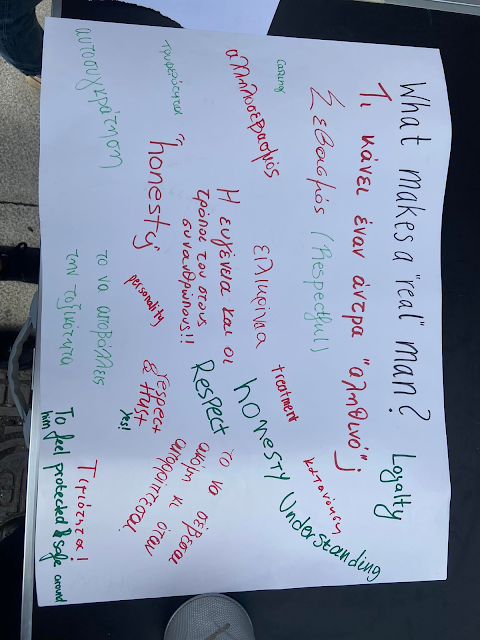 What makes a "real" man?
Τι κάνει έναν άντρα "αληθινό";
Loyalty
Σεβασμός (Respectful)
caring
αλληλοσεβασμός
ειλικρίνεια
treatment
κατανόηση
Understanding
honesty
Η ευγένεια και οι
τρόποι του στους
συνανθρώπους!!
Respect
Το να σέβεσαι
ακόμη κι όταν
απορρίπτεσαι
τρυφερότητα
"honesty"
personality
respect
& trust
Yes!
αυτοσυγκράτηση
το να αποβάλλεις
την τοξικότητα
Τιμιότητα!
To feel protected & safe around
him